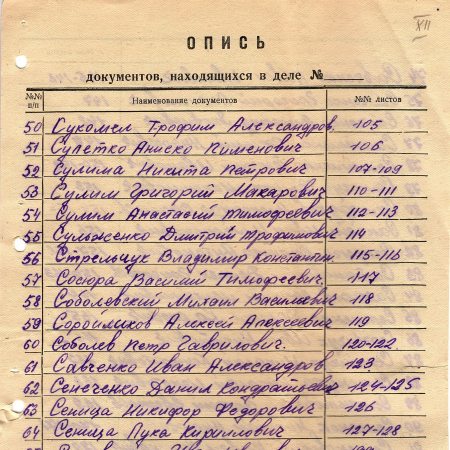 XII
ОПИСЬ
документов, находящихся в деле №
№№ п/п Наименование документов №№ листов
50 Сукомел Трофим Александров. 105
51 Супетко Аниско Пименович 106
52 Сулима Никита Петрович 107-109
53 Сулим Григорий Макарович 110-111
54 Сулим Анастасий Тимофеевич 112-113
55 Сульженко Дмитрий Трофимович 114
56 Стрельчук Владимир Константин. 115-116
57 Сосюра Василий Тимофеевич. 117
58 Соболевский Михаил Васильевич 118
59 Алексей Алексеевич 119
60 Соболев Петр Гаврилович. 120-122
61 Савченко Иван Александров 123
62 Сенеченко Данил Кондратьевич 124-125
63 Сеница Никифор Федорович 126
64 Сеница Лука Кириллович 127-128